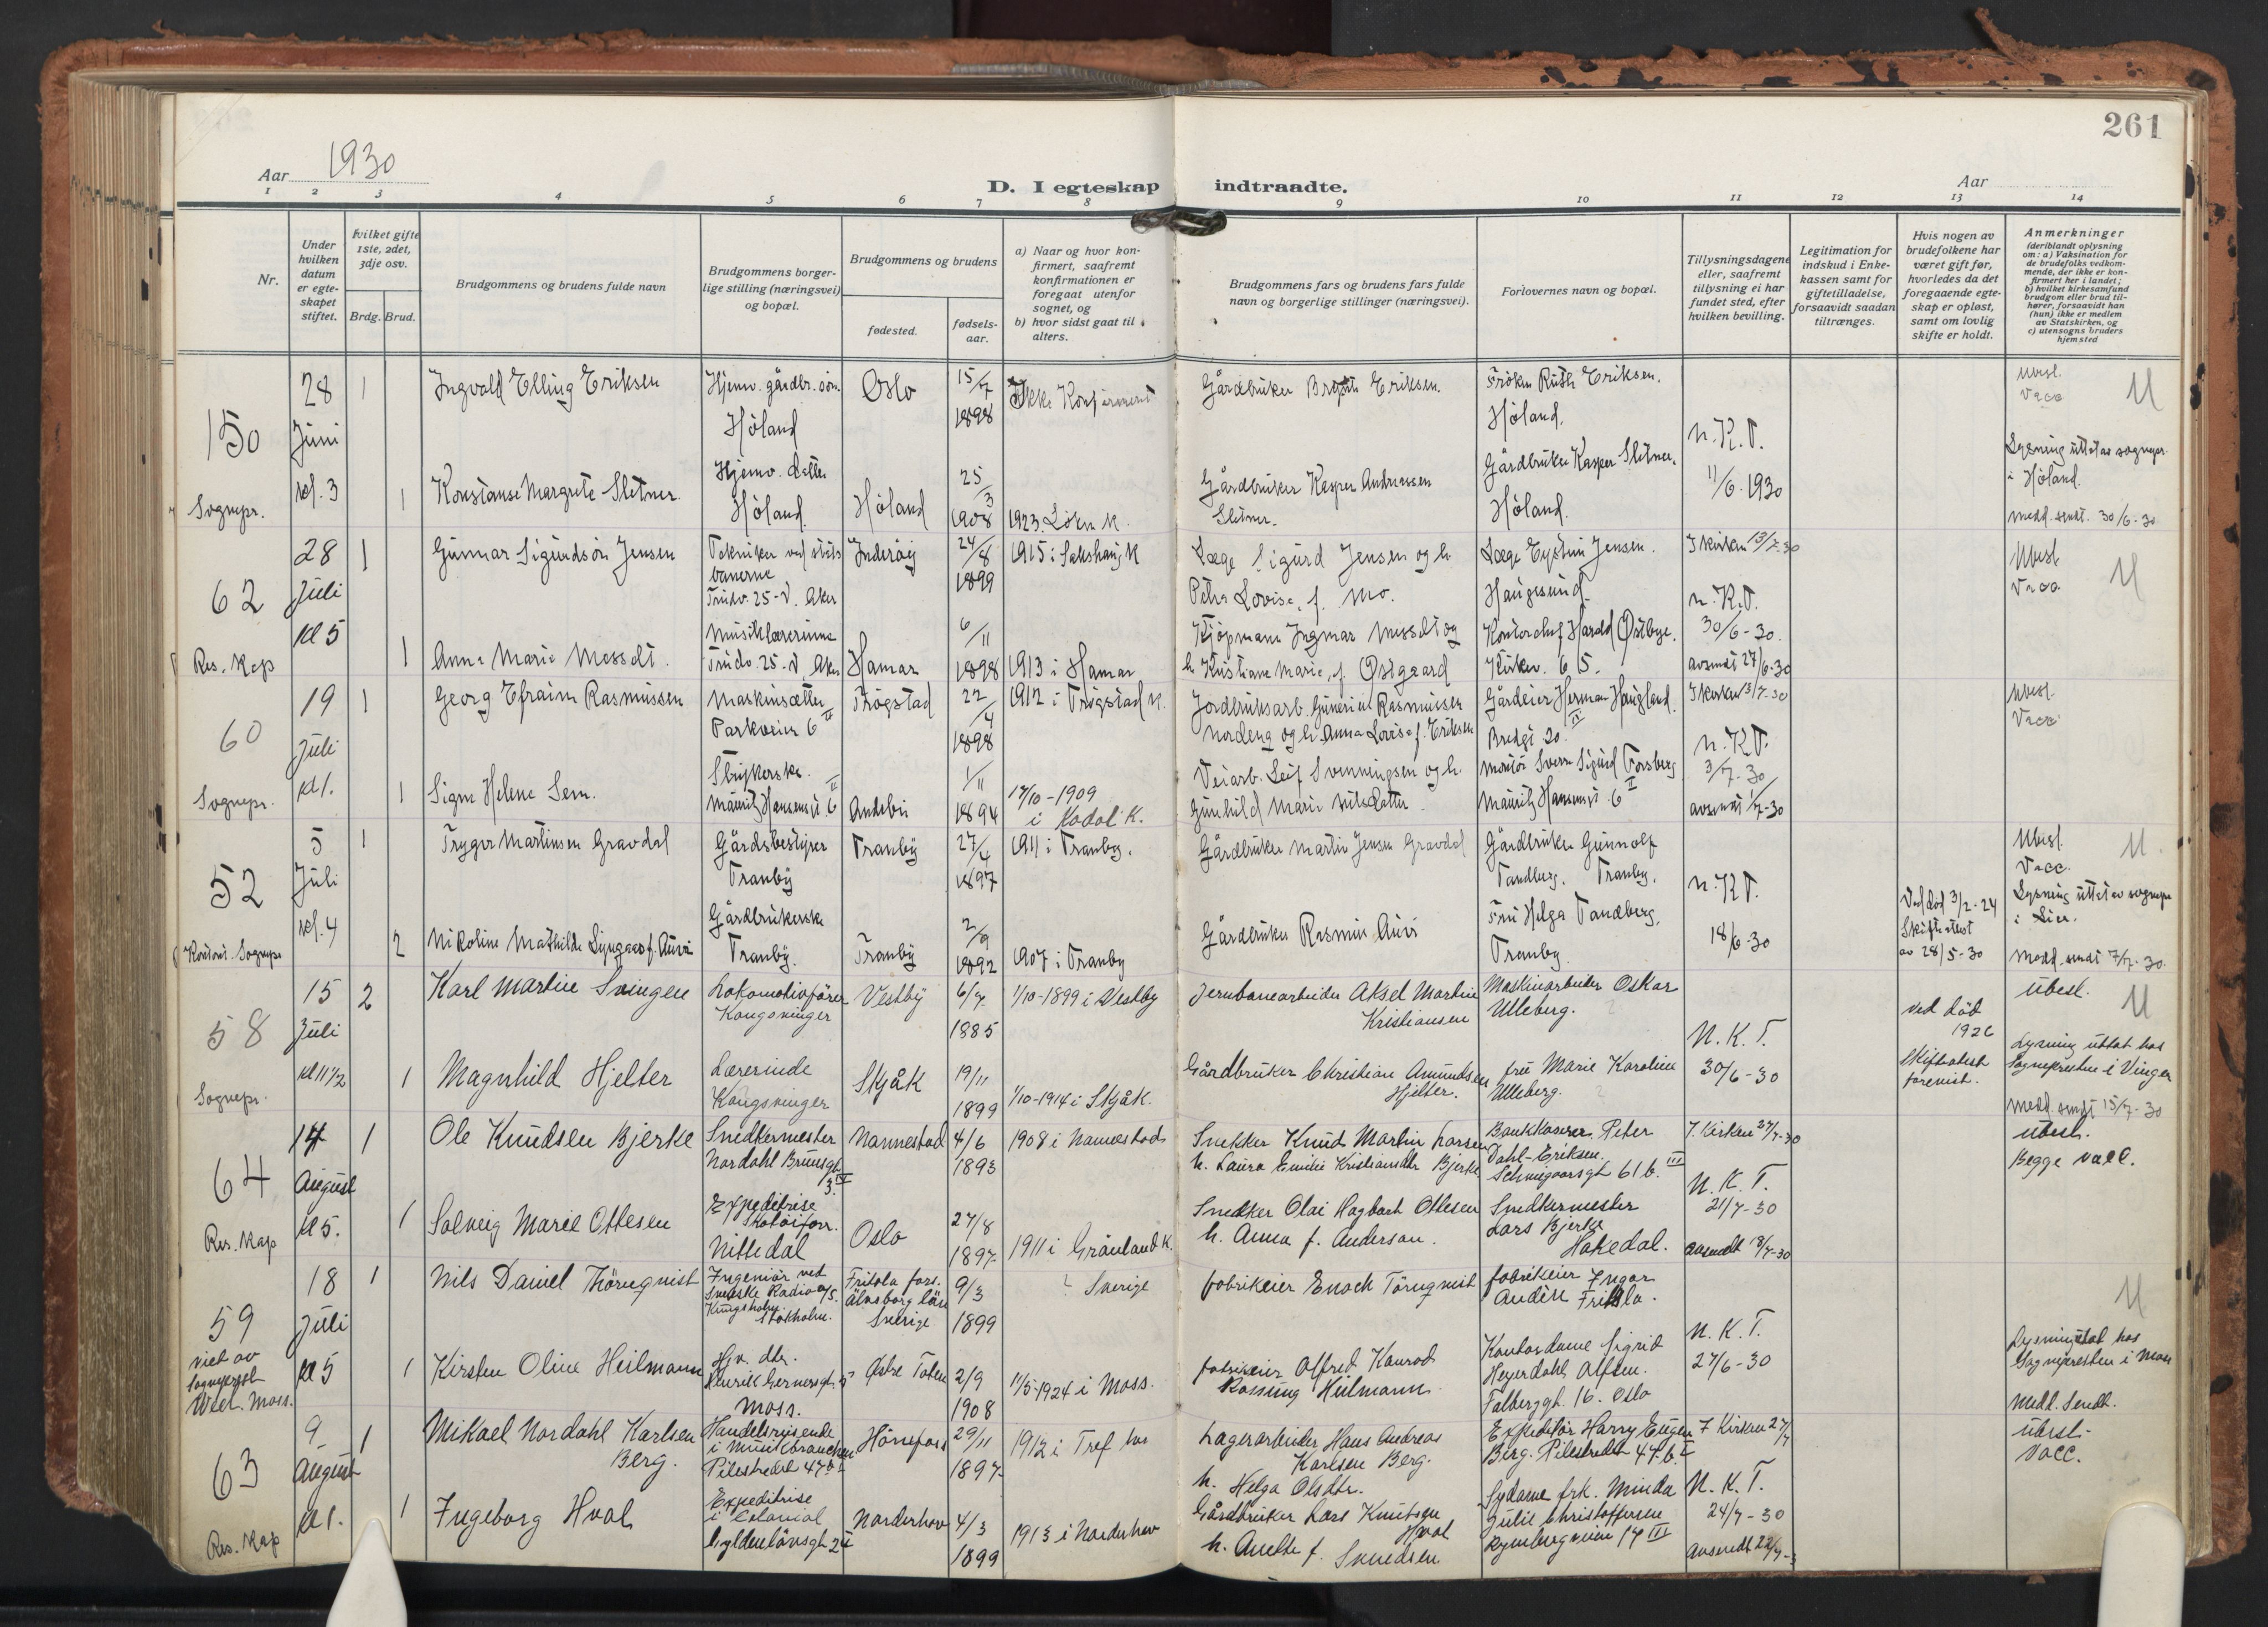 261
Aar 1930
D. I egteskap indtraadte.
Aar
1 2 3 4 5 6 7 8 9 10 11 12 13 14
Nr.
Under hvilken datum er egteskapet stiftet.
Hvilket gifte 1ste, 2det, 3dje osv.
Brdg. Brud.
Brudgommens og brudens fulde navn
Brudgommens borgerlige stilling (næringsvei) og bopæl.
Brudgommens og brudens
fødested.
fødselsaar.
a) Naar og hvor konfirmert, saafremt konfirmationen er foregaat utenfor sognet, og
b) hvor sidst gaat til alters.
Brudgommens fars og brudens fars fulde navn og borgerlige stillinger (næringsvei).
Forlovernes navn og bopæl.
Tillysningsdagene eller, saafremt tillysning ei har fundet sted, efter hvilken bevilling.
Legitimation for indskud i Enkekassen samt for giftetilladelse, forsaavidt saadan tiltrænges.
Hvis nogen av brudefolkene har været gift før, hvorledes da det foregaaende egteskap er opløst, samt om lovlig skifte er holdt.
Anmerkninger
(deriblandt oplysning om: a) Vaksination for de brudefolks vedkommende, der ikke er konfirmert her i landet;
b) hvilket kirkesamfund brudgom eller brud tilhører, forsaavidt han (hun) ikke er medlem av Statskirken, og
c) utensogns bruders hjemsted
150
Sognepr.
28 Juni kl. 3
1
Ingvald Elling Eriksen
Hjemv. gårdbr. søn.
Höland
Oslo
15/7 1898
Ikke Konfirmert
Gårdbruker Eriksen.
Frøken Ruth Eriksen.
Höland.
N.K.T.
11/6 1930
Ubesl.
Vacc
U
1
Konstanse Margrete Sletner.
Hjemv. datter
Höland.
Höland
25/3 1908
1923. Löken K.
Gårdbruker Kasper Andreassen
Sletner.
Gårdbruker Kasper Sletner.
Höland.
Lysning uttat av sognepr.
i Höland.
Medd. sendt. 30/6-30
62
Res. Kap
28 Juli kl 5
1
Gunnar Sigurdsön Jensen
Tekniker ved stats
banerne
Trudv. 25-V. Aker
Inderöy
24/8 1899
1915 i Sakshaug K
Læge Sigurd Jensen og h.
Petra Lovise, f. Mo.
Læge Eystein Jensen.
Haugesund.
I kirken 13/7-30
N.K.T.
30/6-30.
avsendt 27/6-30
Ubesl
Vacc.
U
1
Anna Marie Messelt.
Musiklærerinne
Trudv. 25-V, Aker
Hamar
6/11 1898
1913 i Hamar
Kjöpmann Ingmar Messelt og
h. Kristiane Marie, f. Østgaard
Kontorchef Harald Østbye.
Kirkev. 65.
60
Sognepr.
19 Juli kl 1.
1
Georg Efraim Rasmussen
Maskinsætter
Parkveien 6 II
Trögstad
22/4 1898
1912 i Trögstad K.
Jordbruksarb. Gunerius Rasmussen
Nordeng og h. Anna Lovise f. Eriksen
Gårdeier Herman Haugland.
Bredgt 20. II
I kirken 13/7-30
N.K.T.
3/7-30
avsendt 1/7-30
Ubesl.
Vacc
1
Signe Helene Sem.
Strykerske.
Mauritz Hansensgt 6 II
Andebu
1/11 1894
17/10-1909
i Kodal K.
Veiarb. Leif Svenningsen og h.
Gunhild Marie Nilsdatter
Montör Sverre Sigurd Forsberg
Mauritz Hansensgt. 6 II
52
Kontort. Sognepr
5 Juli kl. 4
1
Trygve Martinsen Gravdal
Gårdsbestyrer
Tranby
Tranby
27/4 1897
1911 i Tranby.
Gårdbruker Martin Jensen Gravdal
Gårdbruker Gunnolf
Tandberg. Tranby.
N.K.T.
18/6-30
Ubesl
Vacc.
U.
2
Nikoline Mathilde Lyngaas f. Auvi
Gårdbrukerske
Tranby.
Tranby
2/9 1892
1907 i Tranby
Gårdbruker Rasmus Auvi
Fru Helga Tandberg,
Tranby.
Ved död 3/2-24
Skifteattest
av 28/5-30
Lysning uttat av sognepr
i Lier.
Medd. sendt 7/7-30.
58
Sognepr.
15 Juli kl 11 1/2
2
Karl Martin Svingen
Lokomotivförer
Kongsvinger
Vestby
6/7 1885
1/10-1899 i Vestby
Jernbanearbeider Aksel Martin
Kristiansen
Maskinarbeider Oskar
Ulleberg.
N.K.T.
30/6-30
ved död
1926
Skifteattest
forevist.
Ubesl.
U
1
Magnhild Hjelter
Lærerinde
Kongsvinger
Skjåk
19/11 1899
1/10-1914 i Skjåk.
Gårdbruker Christian Amundsen
Hjelter.
fru Marie Karoline
Ulleberg.
Lysning uttat hos
Sognepresten i Vinger
Medd. sendt 15/7-30
64
Res. Kap
14 August kl 5.
1
Ole Knudsen Bjerke
Snedkermester
Nordahl Brunsgt.
3. IV
Nannestad
4/6 1893
1908 i Nannestad
Snekker Knud Martin Larsen
h. Laura Emilie Kristiansdtr Bjerke
Bankkasserer Peter
Dahl-Eriksen.
Schweigaarsgt 61 b. III
I. Kirken 27/7-30
N.K.T.
21/7-30
avsendt 18/7-30
Ubesl.
Begge vacc.
1
Solveig Marie Ottesen
Expeditrise
Skotöiforr.
Nittedal
Oslo
27/8 1897
1911 i Grönland K.
Snedker Olai Hagbart Ottesen
h. Anna f. Anderson.
Snedkermester
Lars Bjerke
Hakedal.
59
viet av
Sogneprest
Moss.
18 Juli kl 5
1
Nils Daniel Thörnqvist
Ingeniör ved
Svenske Radio A/S.
Stokholm.
Fritsla fors.
Älvsborg län
Sverige
9/3 1899
? Sverige
fabrikeier Enoch Törnqvist
fabrikeier Ingar
Andén Fritsla.
N.K.T.
27/6-30
U
1
Kirsten Oline Heilmann
Hjv. dtr.
Henrik Gernersgt. 5
Moss.
Østre Toten
2/9 1908
11/5-1924 i Moss.
fabrikeier Alfred Konrad
Rossing Heilmann
Kontordame Sigrid
Heyerdahl Alfsen.
Falbergt. 16. Oslo
Lysning uttat hos
Sognepresten i Moss
Medd. Sendt.
63
Res. Kap
9 August kl 1.
1
Mikael Nordahl Karlsen
Berg.
Handelsreisende
i musikbranchen
Pilestredet 47 b I
Hönefoss
29/11 1897
1912 i Tref. hos
Lagerarbeider Hans Andreas
Karlsen Berg.
h. Helga Olsdtr.
Expeditör Harry Eugen
Berg. Pilestredet 47. b. I
I Kirken 27/7
N.K.T.
24/7-30
avsendt 22/7-3
Ubesl.
Vacc.
1
Ingeborg Hval
Expeditrise
i Colonial
Gyldenlövsgt 24
Norderhov
4/3 1899
1913 i Norderhov
Gårdbruker Lars Knutsen
Hval
h. Anette f. Svendsen
Sydame frk. Minda
Julie Christoffersen
17 III